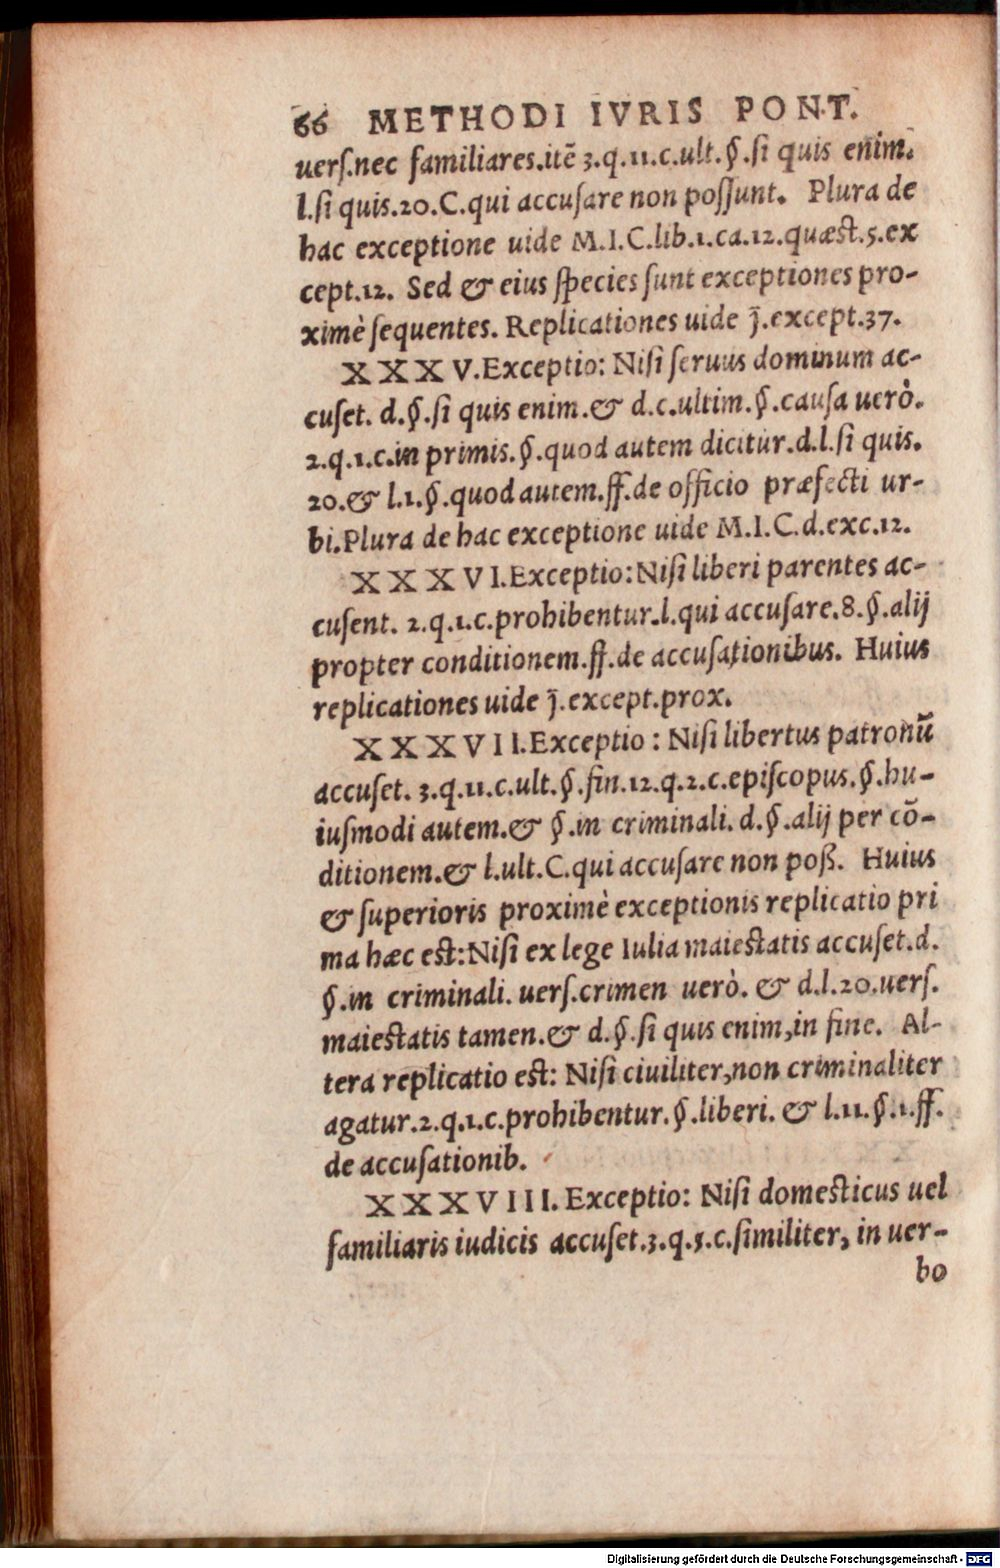 66 METHODI IVRIS PONT.
uerſ.nec familiares.itē 3.q.11.c.ult.§.ſi quis enim.
l.ſi quis.20.C.qui accuſare non poſſunt. Plura de
hac exceptione uide M.I.C.lib.1.ca.12.quæst.5.ex
cept.12. Sed & eius ſpecies ſunt exceptiones pro-
ximè ſequentes. Replicationes uide j̄.except.37.
XXXV.Exceptio: Niſi ſeruus dominum ac-
cuſet. d.§.ſi quis enim.& d.c.ultim.§.cauſa uerò.
2.q.1.c.in primis.§.quod autem dicitur.d.l.ſi quis.
20.& l.1.§.quod autem.ff.de officio præfecti ur-
bi.Plura de hac exceptione uide M.I.C.d.exc.12.
XXXVI.Exceptio:Niſi liberi parentes ac-
cuſent. 2.q.1.c.prohibentur.l.qui accuſare.8.§.alij
propter conditionem.ff.de accuſationibus. Huius
replicationes uide j̄.except.prox.
XXXVII.Exceptio : Niſi libertus patronū
accuſet. 3.q.11.c.ult.§.fin.12.q.2.c.epiſcopus.§.hu-
iuſmodi autem.& §.in criminali. d.§.alij per cō-
ditionem.& l.ult.C.qui accuſare non poß. Huius
& ſuperioris proximè exceptionis replicatio pri
ma hæc est:Niſi ex lege Iulia maiestatis accuſet.d.
§.in criminali. uerſ.crimen uerò. & d.l.20.uerſ.
maiestatis tamen.& d.§.ſi quis enim,in fine. Al-
tera replicatio est: Niſi ciuiliter,non criminaliter
agatur.2.q.1.c.prohibentur.§.liberi. & l.11.§.1.ff.
de accuſationib.
XXXVIII. Exceptio: Niſi domesticus uel
familiaris iudicis accuſet.3.q.5.c.ſimiliter, in uer-
bo
Digitalisierung gefördert durch die Deutsche Forschungsgemeinschaft - DFG